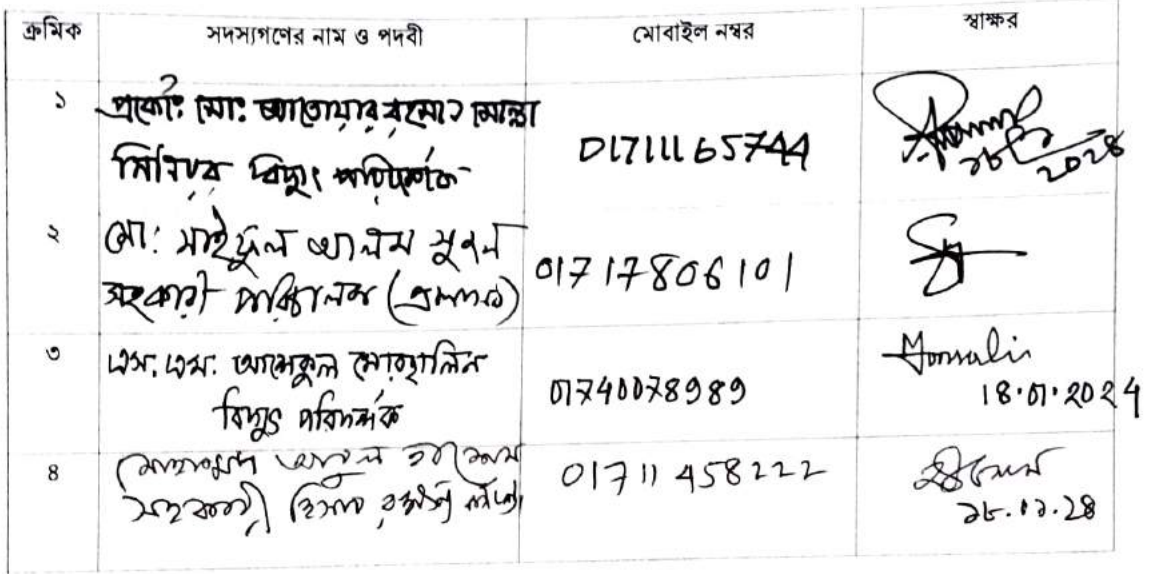 ক্রমিক সদস্যগণের নাম ও পদবী মোবাইল নম্বর স্বাক্ষর
১ প্রকৌঃ মোঃ আতোয়ার রহমান মোল্লা
সিনিয়র বিদ্যুৎ পরিদর্শক 01711165744
২ মো: সাইফুল আলম
সহকারী পরিচালক (প্রশাসন) 01717806101
৩ এস. এম. আশেকুল মোরছালিন
বিদ্যুৎ পরিদর্শক 01740078989 18.01.2024
৪ মোহাম্মদ আবুল
সহকারী হিসাব 01711458222
১৮.০১.২৪